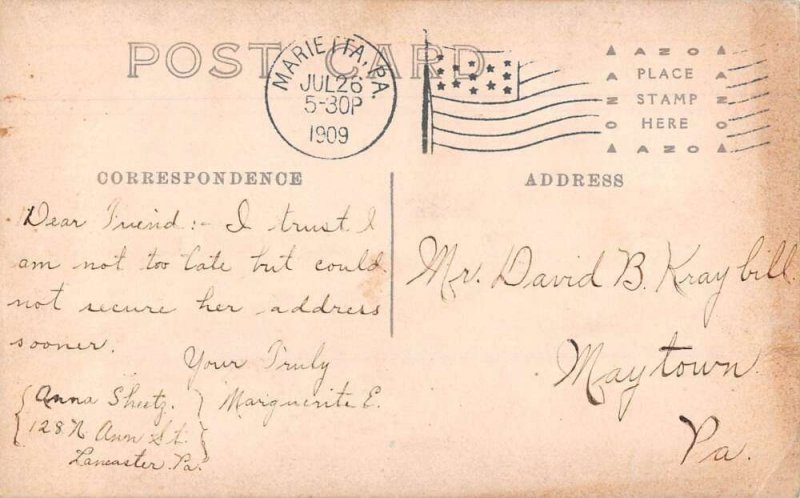 POST CARD
MARIETTA, PA.
JUL 26
5-30P
1909
AZO
PLACE
STAMP
HERE
AZO
CORRESPONDENCE
ADDRESS
Dear Friend:- I trust I
am not too late but could
not secure her address
sooner.
Your Truly
Marguerite E.
Anna Sheetz.
128 N. Ann St.
Lancaster Pa.
Mr. David B. Kraybill
Maytown
Pa.